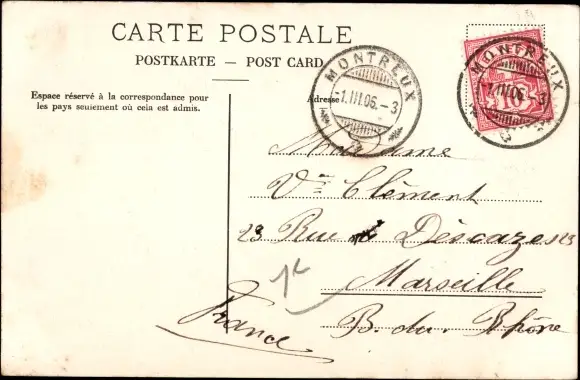 CARTE POSTALE
POSTKARTE — POST CARD
Espace réservé à la correspondance pour
les pays seulement où cela est admis.
Adresse
MONTREUX
-1.III.06.-3
MONTREUX
1.III.06.-3
10
Madame
Vve Clément
23 Rue Descazes 23
Marseille
B. du. Rhône
France